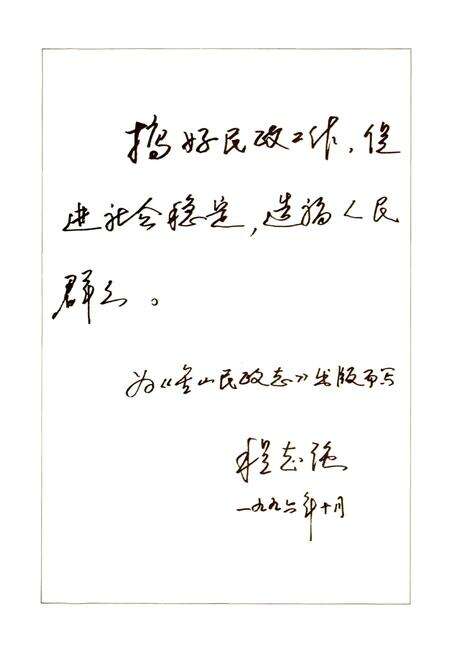 搞好民政工作，促
进社会稳定，造福人民
群众。
为《金山民政志》出版而写
程志强
一九九六年十月